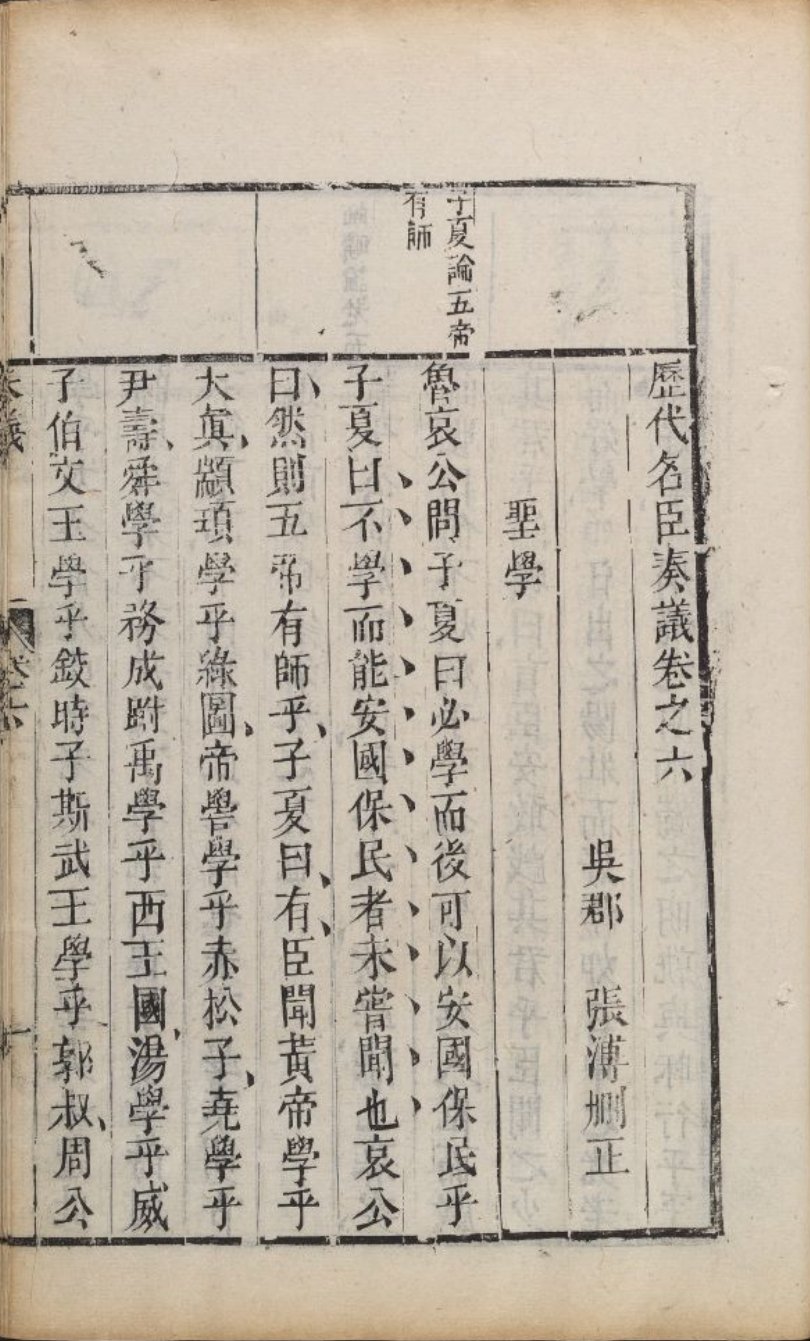 歷代名臣奏議卷之六
吳郡 張溥刪正
聖學
子夏論五帝
有師
魯哀公問子夏曰必學而後可以安國保民乎
子夏曰不學而能安國保民者未嘗聞也哀公
曰然則五帝有師乎子夏曰有臣聞黃帝學乎
大真顓頊學乎綠圖帝嚳學乎赤松子堯學乎
尹壽舜學乎務成跗禹學乎西王國湯學乎威
子伯文王學乎鉸時子斯武王學乎郭叔周公
奏議 卷之六 一